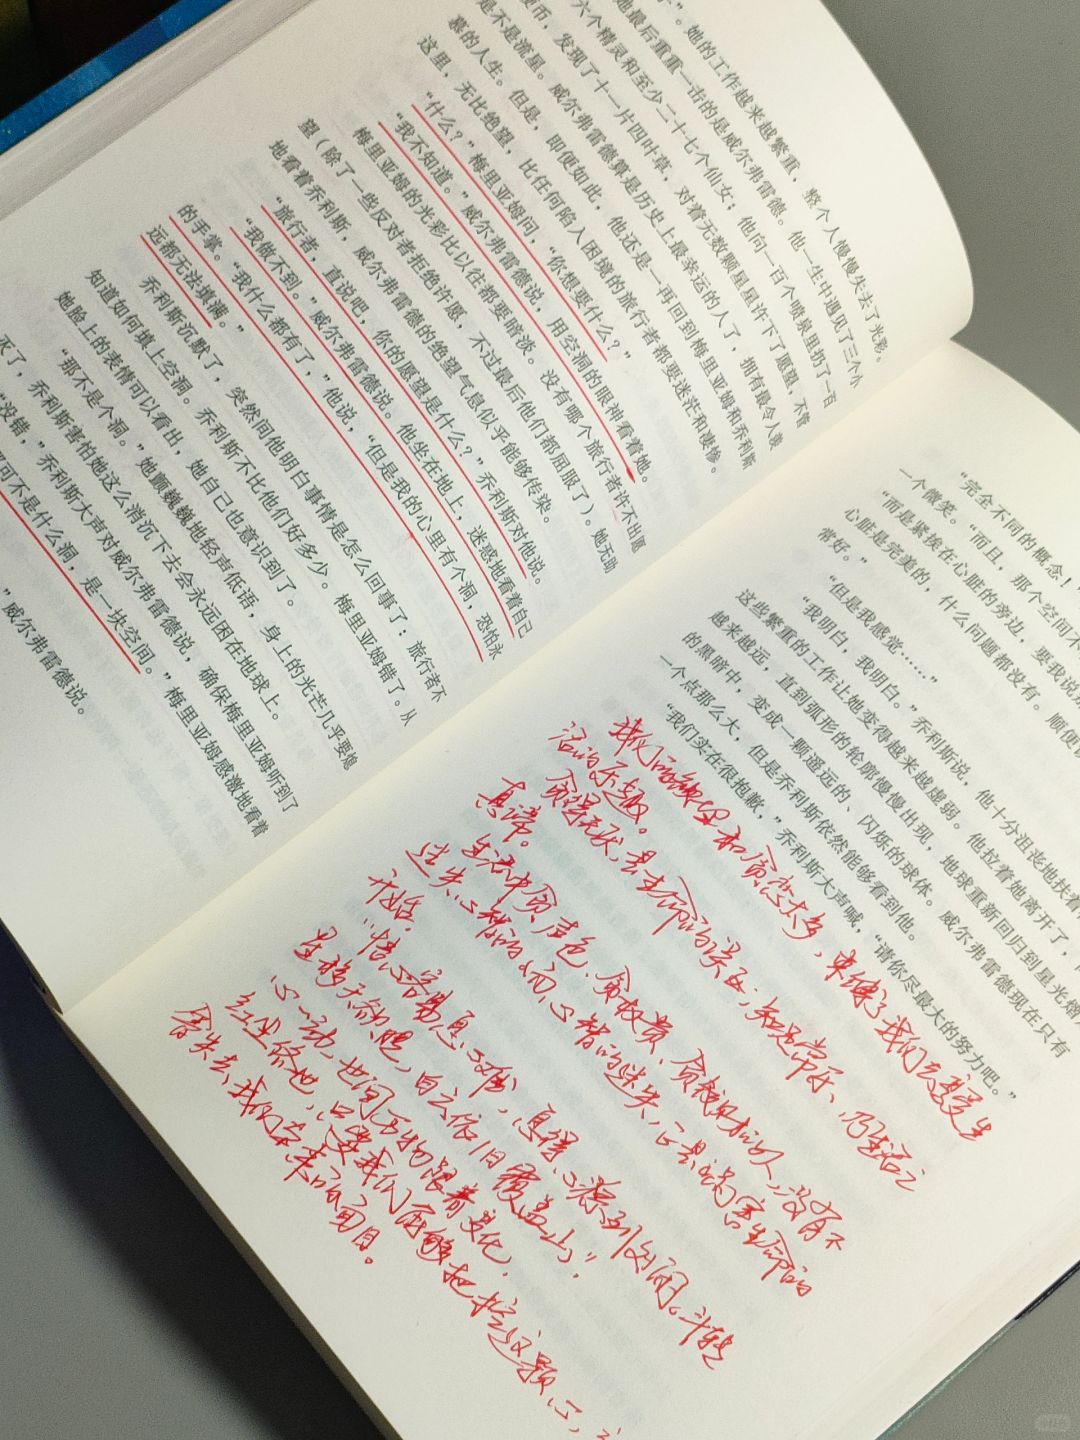 子”。她的工作越来越繁重，整个人慢慢失去了光彩。
她最后重重一击的是威尔弗雷德。他一生中遇见了三个小
六个精灵和至少二十七个仙女；他向一百个喷泉里扔了一百
硬币，发现了十一片四叶草，对着无数颗星星许下了愿望，不管
是不是流星。威尔弗雷德算是历史上最幸运的人了，拥有最令人羡
慕的人生。但是，即便如此，他还是一再回到梅里亚姆和乔利斯
这里，无比绝望，比任何陷入困境的旅行者都要迷茫和悲惨。
“什么？”梅里亚姆问，“你想要什么？”
“我不知道。”威尔弗雷德说，用空洞的眼神看着她。
梅里亚姆的光彩比以往都要暗淡。没有哪个旅行者许不出愿
望（除了一些反对者拒绝许愿，不过最后他们都屈服了）。她无助
地看着乔利斯，威尔弗雷德的绝望气息似乎能够传染。
“旅行者，直说吧，你的愿望是什么？”乔利斯对他说。
“我做不到。”威尔弗雷德说。他坐在地上，迷惑地看着自己
的手掌。“我什么都有了，”他说，“但是我的心里有个洞，恐怕永
远都无法填满。”
乔利斯沉默了，突然间他明白事情是怎么回事了：旅行者不
知道如何填上空洞。乔利斯不比他们好多少。梅里亚姆错了。从
她脸上的表情可以看出，她自己也意识到了。
“那不是个洞。”她颤巍巍地轻声低语，身上的光芒几乎要熄
灭了，乔利斯害怕她这么消沉下去会永远困在地球上。
“没错，”乔利斯大声对威尔弗雷德说，确保梅里亚姆听到了
可不是什么洞，是一块空间。”梅里亚姆感激地看着
”威尔弗雷德说。
“完全不同的概念！
一个微笑。“而且，那个空间不
“而是紧挨在心脏的旁边，要我说
心脏是完美的，什么问题都没有。顺便
常好。”
“但是我感觉……”
“我明白，我明白。”乔利斯说，他十分沮丧地扶着
这些繁重的工作让她变得越来越虚弱。他拉着她离开了，
越来越远，直到弧形的轮廓慢慢出现，地球重新回归到星光熠
的黑暗中，变成一颗遥远的、闪烁的球体。威尔弗雷德现在只有
一个点那么大，但是乔利斯依然能够看到他。
“我们实在很抱歉，”乔利斯大声喊，“请你尽最大的努力吧。”
我们的欲望和贪恋太多，束缚了我们去享受生
活的乐趣。
贪得无厌，是生命的误区；知足常乐，乃生活之
真谛。
生活中贪声色、贪权贵、贪便宜的人，没有不
迷失心智的，而心智的迷失，正是祸害生命的
开始。
“情心容易息心难，息得心源到处闲。斗转
星移天欲晓，白云依旧覆盖山。”
心一动，世间万物跟着变化，
红尘俗世，只要我们能够把控这颗心，
会失去我们本来的面目。